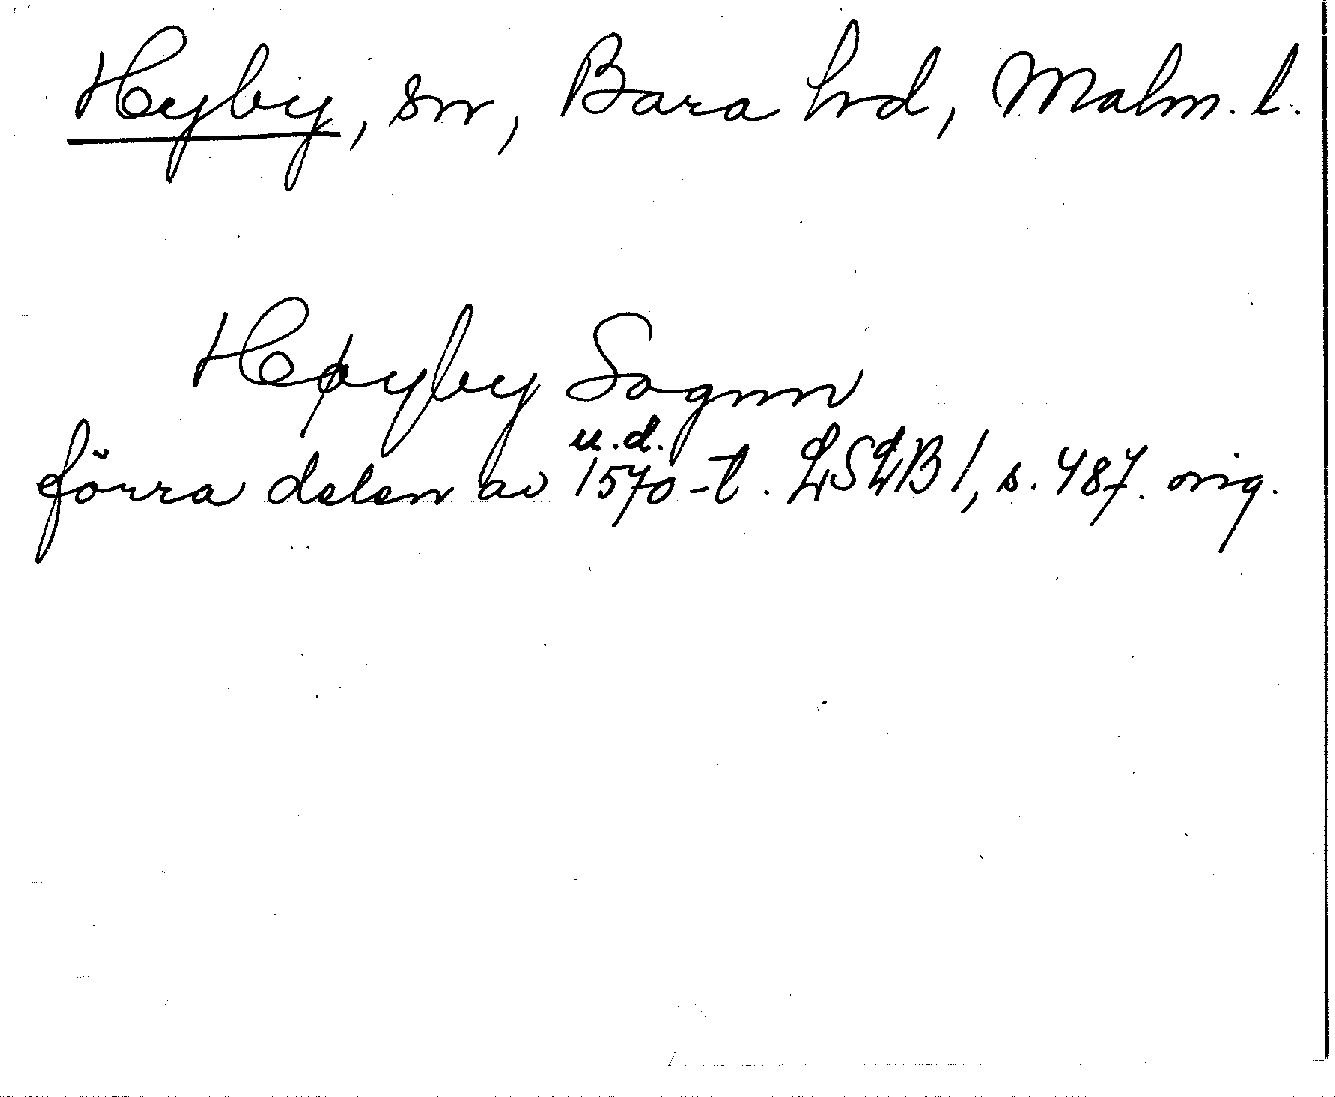 Hyby, sn, Bara hd, Malm. l.
Høyby Sognn
u.d.
förra delen av 1570-t. LSLB 1, s. 487. orig.